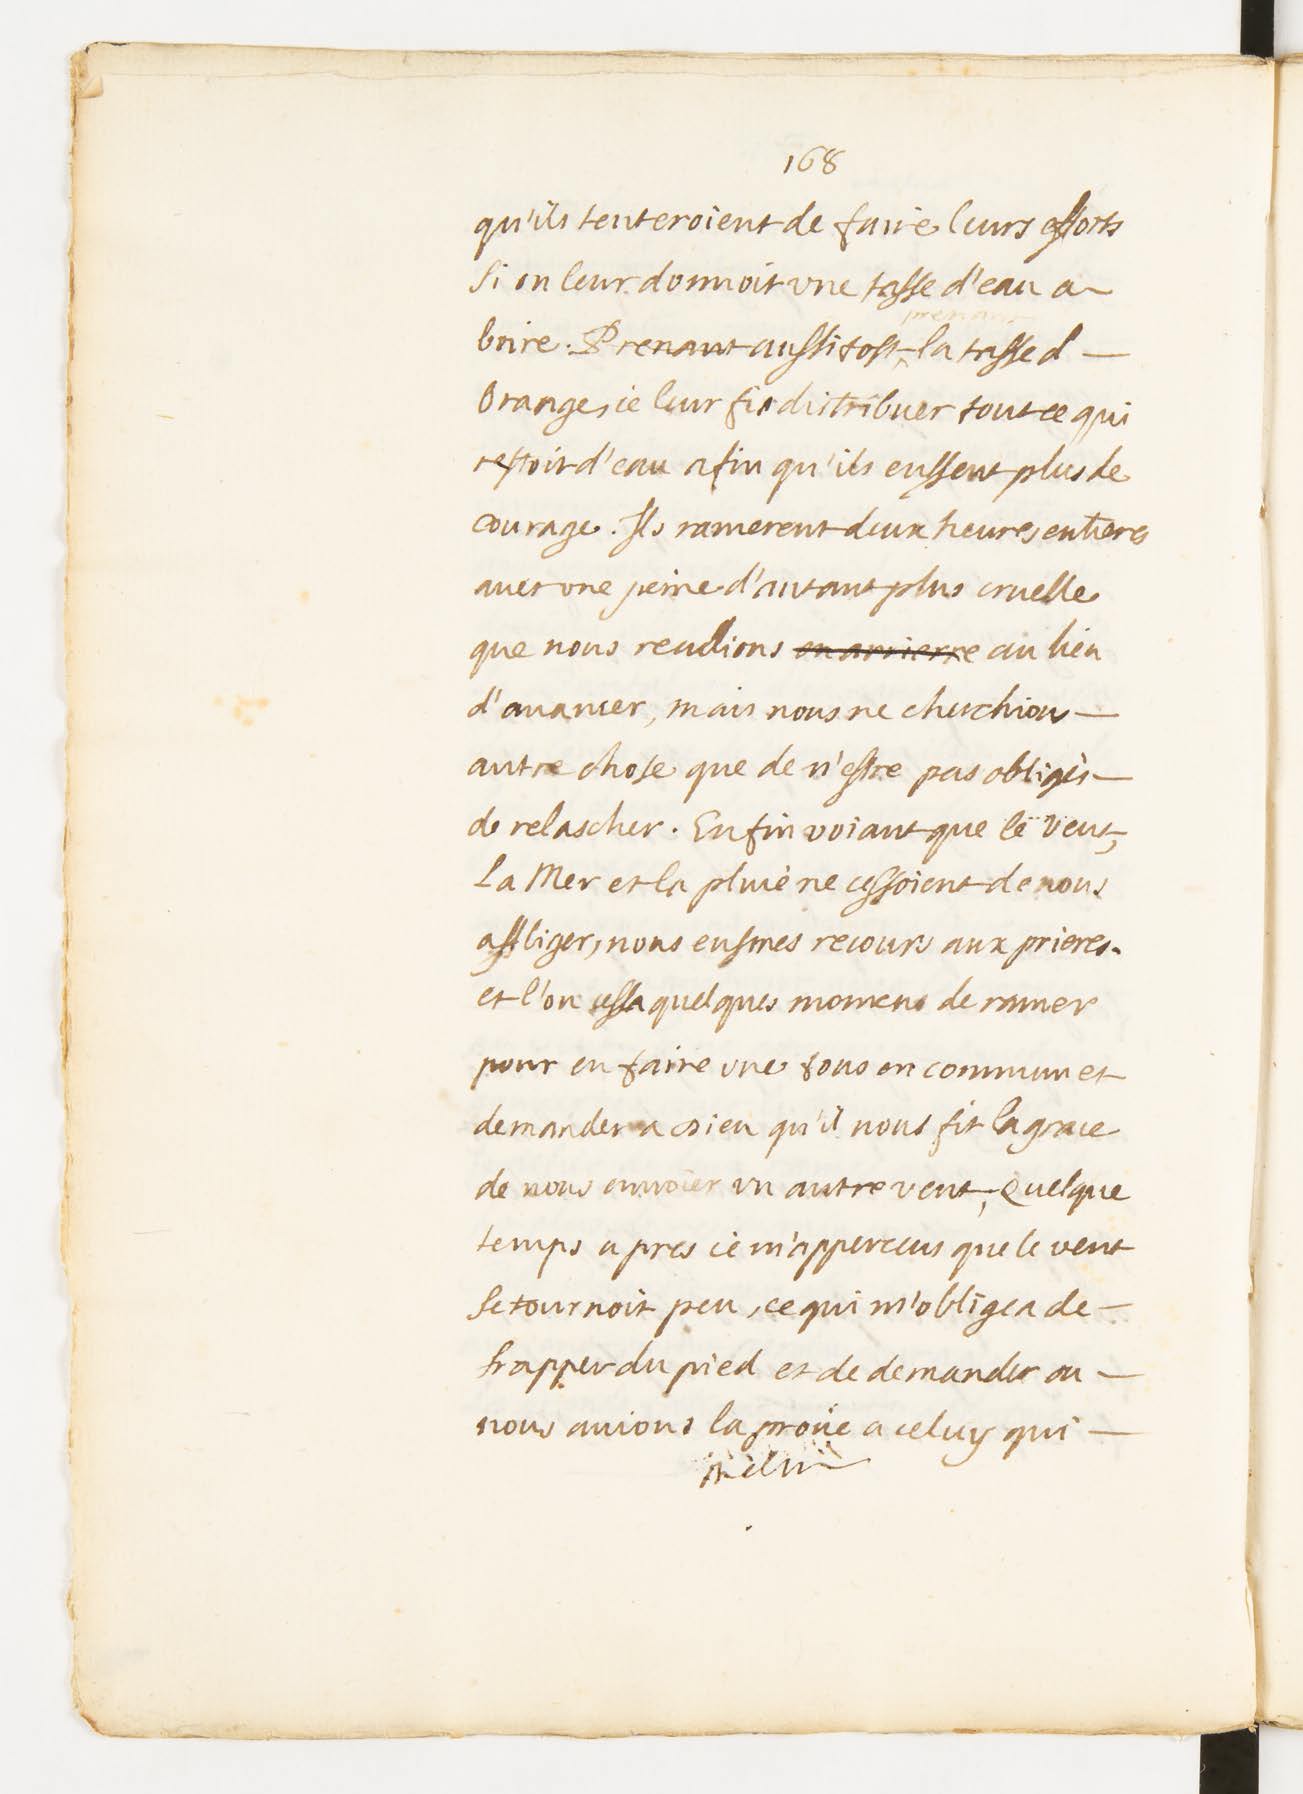 168
qu'ils tenteroient de faire leurs efforts
si on leur donnoit vne tasse d'eau a
boire. Prenant aussi tost la tasse d
prenant
Orange, ie leur fis distribuer tout ce qui
restoit d'eau afin qu'ils eussent plus de
courage. Ils ramerent deux heures entieres
auec vne peine d'autant plus cruelle
que nous reculions en arrierre au lieu
d'auancer, mais nous ne cherchions
autre chose que de n'estre pas obligès
de relascher. Enfin voiant que le vent,
La Mer et la pluie ne cessoient de nous
affliger, nous eusmes recours aux prieres.
et l'on cessa quelques momens de ramer
pour en faire vne tous en commun et
demander a Dieu qu'il nous fit la grace
de nous enuoier vn autre vent, Quelque
temps apres ie m'apperceus que le vent
se tournoit peu, ce qui m'obligea de
frapper du pied et de demander ou
nous auions la proüe a celuy qui